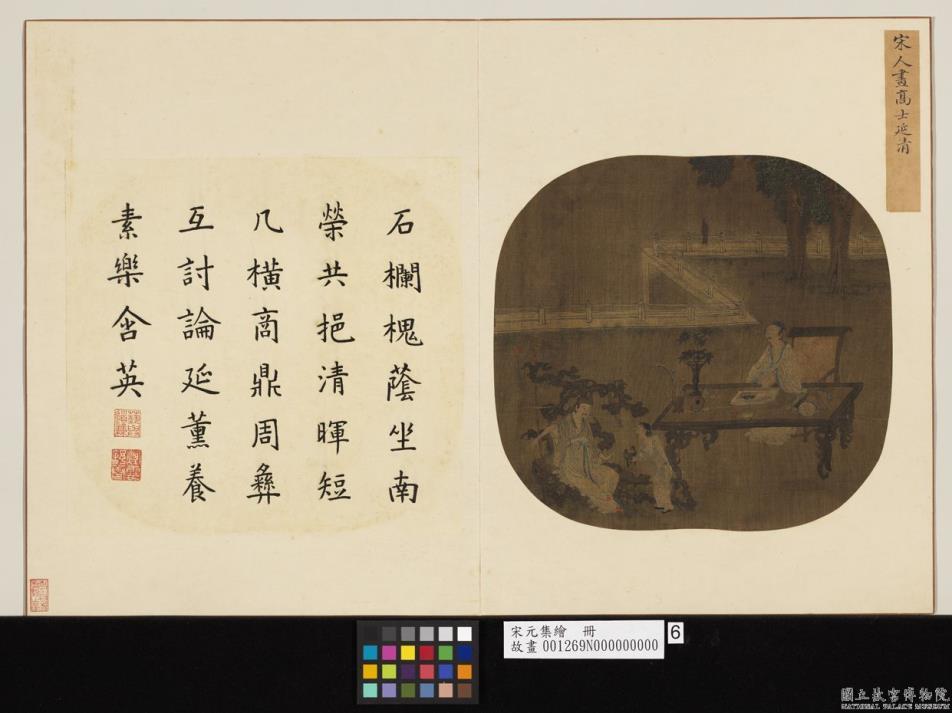 宋人畫高士延清
石欄槐蔭坐南
榮共挹清暉短
几橫商鼎周彝
互討論延薰養
素樂含英
宋元集繪 冊
故畫 001269N000000000
6
國立故宮博物院
NATIONAL PALACE MUSEUM